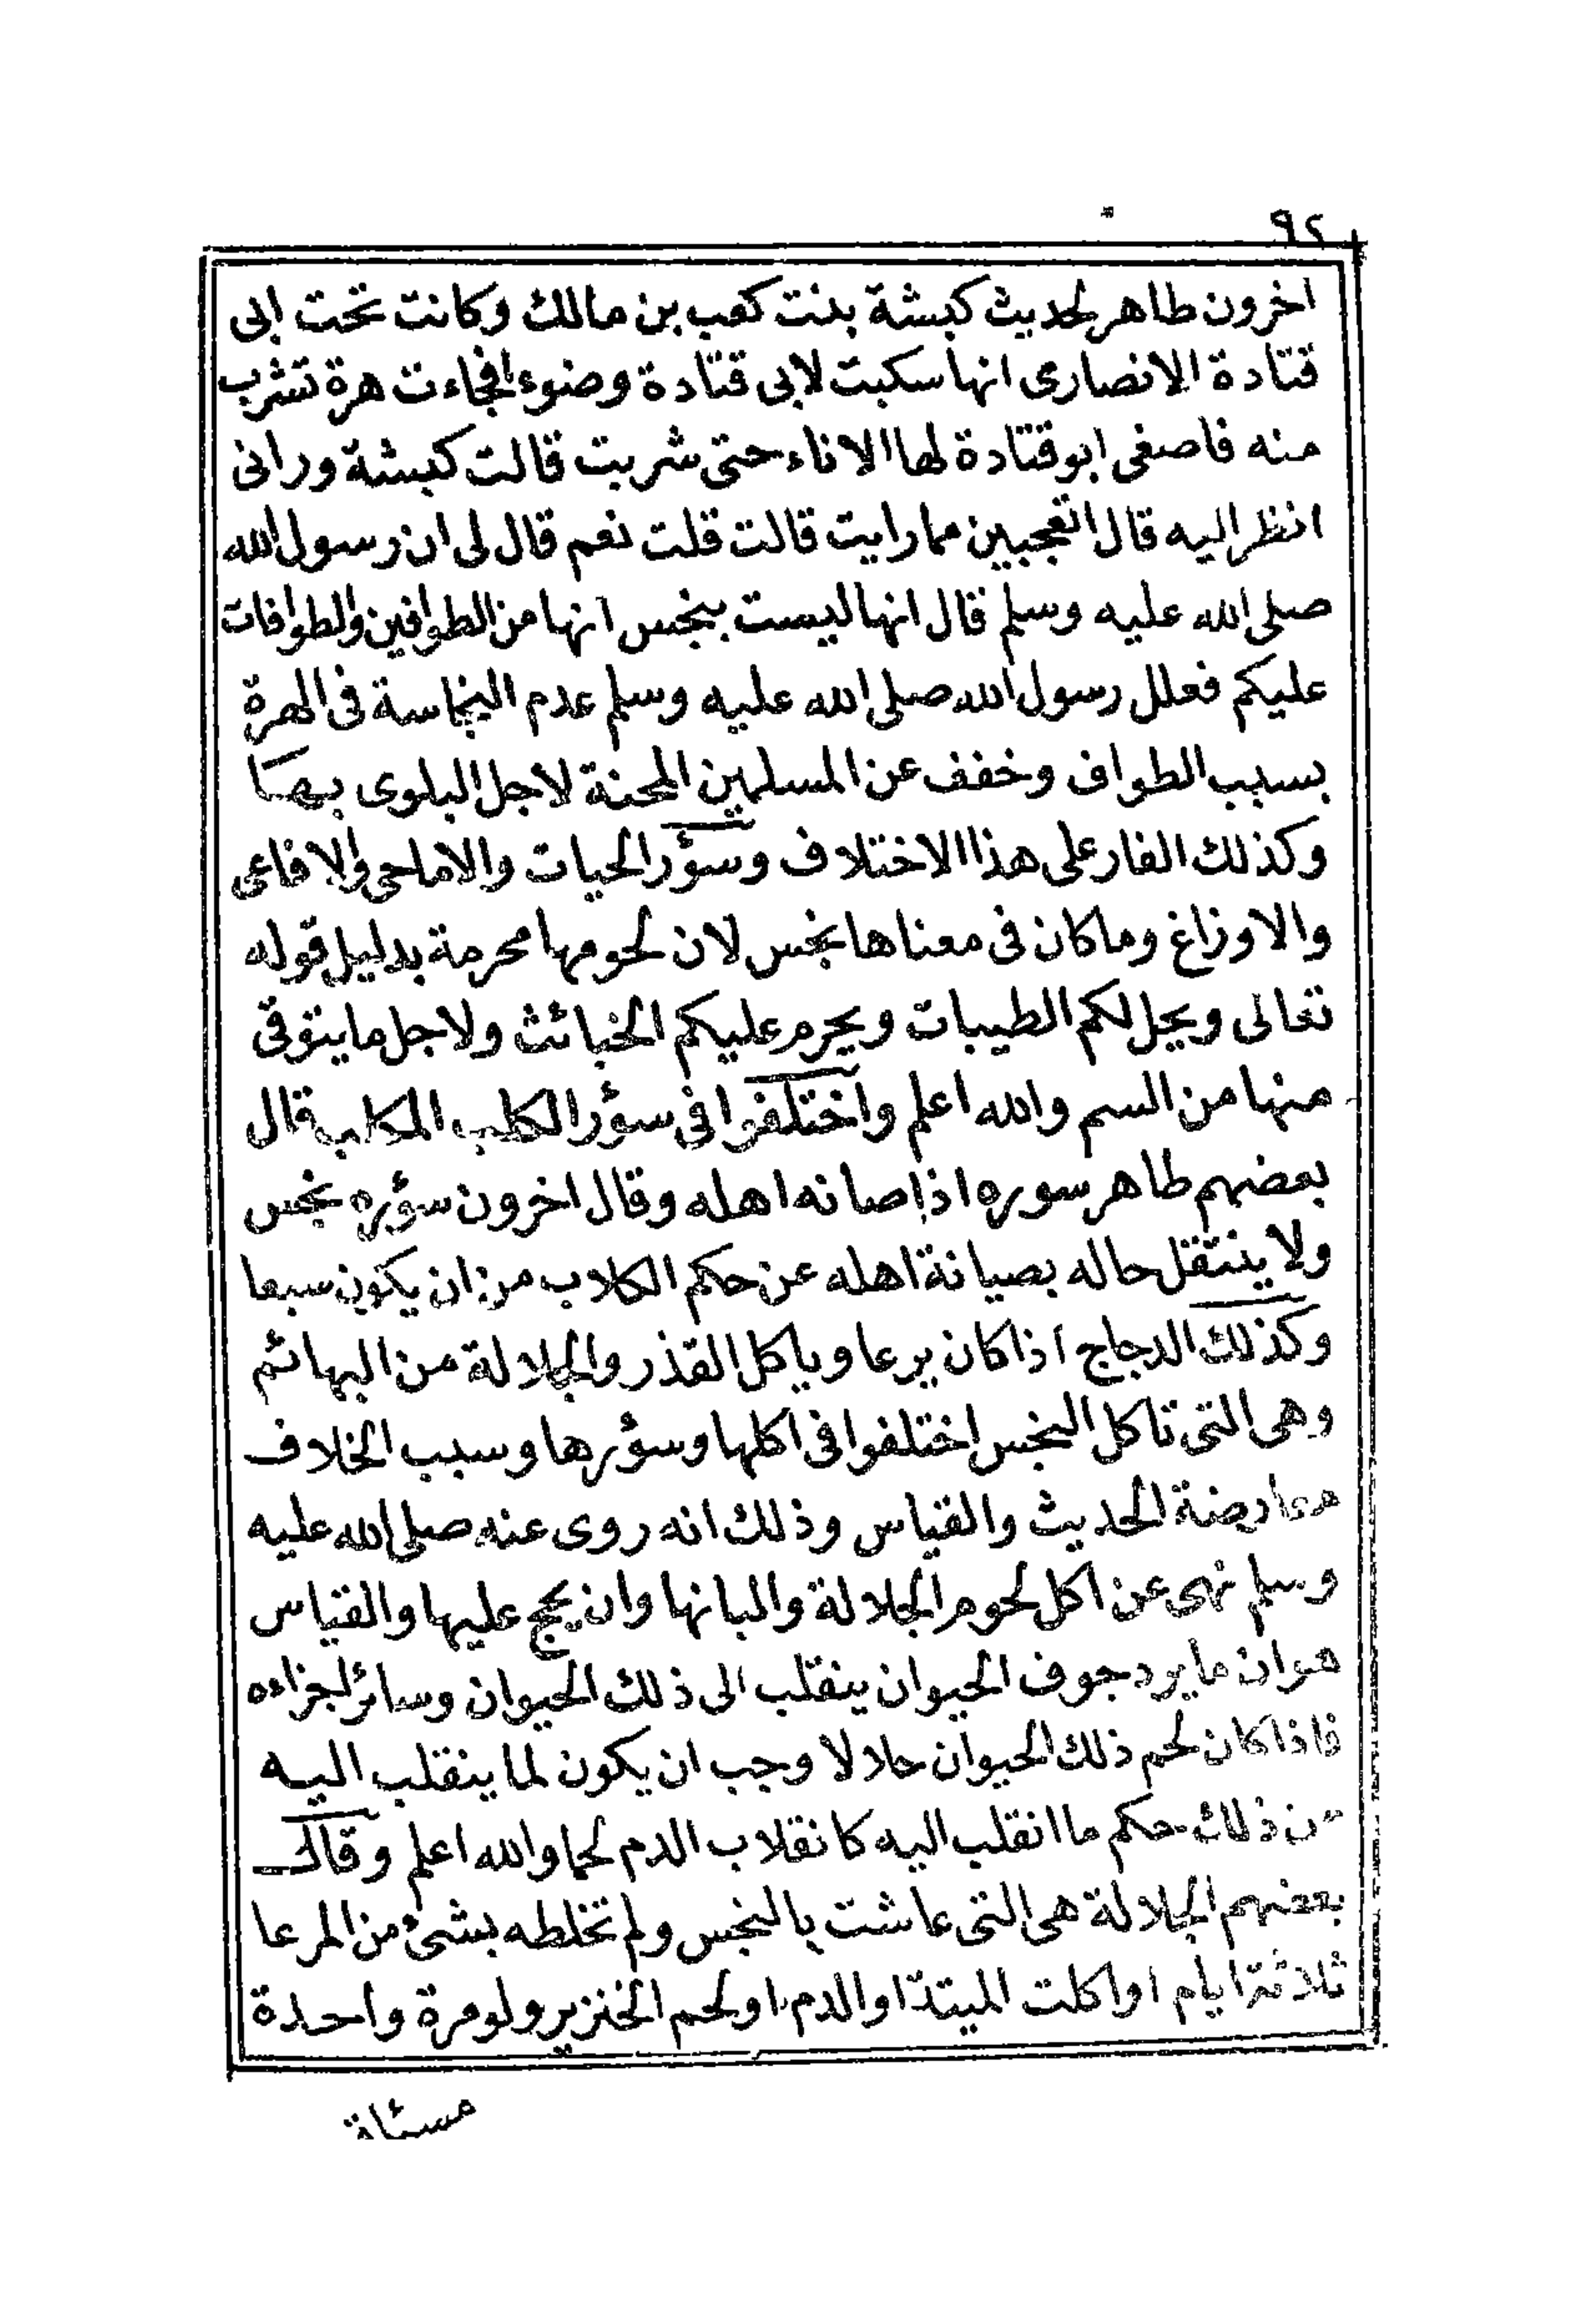 ٩٢
اخرون طاهر لحديث كبشة بنت كعب بن مالك وكانت تحت ابى
قتادة الانصارى انها سكبت لابى قتادة وضوءا فجاءت هرة تشرب
منه فاصغى ابو قتادة لها الاناء حتى شربت قالت كبشة ورانى
انظر اليه قال اتعجبين مما رايت قالت قلت نعم قال لى ان رسول الله
صلى الله عليه وسلم قال انها ليست بنجس انها من الطوافين والطوافات
عليكم فعلل رسول الله صلى الله عليه وسلم عدم النجاسة فى الهرة
بسبب الطواف وخفف عن المسلمين المحنة لاجل البلوى بها
وكذلك الفار على هذا الاختلاف وسؤر الحيات والاماحى والافاعى
والاوزاغ وما كان فى معناها نجس لان لحومها محرمة بدليل قوله
تعالى ويحل لكم الطيبات ويحرم عليكم الخبائث ولاجل ما يتوقى
منها من السم والله اعلم واختلفوا فى سؤر الكلب المكلب قال
بعضهم طاهر سوره اذا صانه اهله وقال اخرون سؤره نجس
ولا ينتقل حاله بصيانة اهله عن حكم الكلاب من ان يكون سبعا
وكذلك الدجاج اذا كان يرعا وياكل القذر والجلالة من البهائم
وهى التى تاكل النجس اختلفوا فى اكلها وسؤرها وسبب الخلاف
معارضة الحديث والقياس وذلك انه روى عنه صلى الله عليه
وسلم نهى عن اكل لحوم الجلالة والبانها وان يحج عليها والقياس
هو ان ما يرد جوف الحيوان ينقلب الى ذلك الحيوان وسائر اجزاءه
فاذا كان لحم ذلك الحيوان حلالا وجب ان يكون لما ينقلب اليه
من ذلك حكم ما انقلب اليه كانقلاب الدم لحما والله اعلم وقال
بعضهم الجلالة هى التى عاشت بالنجس ولم تخلطه بشئ من المرعا
ثلاثة ايام او اكلت الميتة او الدم او لحم الخنزير ولو مرة واحدة
مسئلة